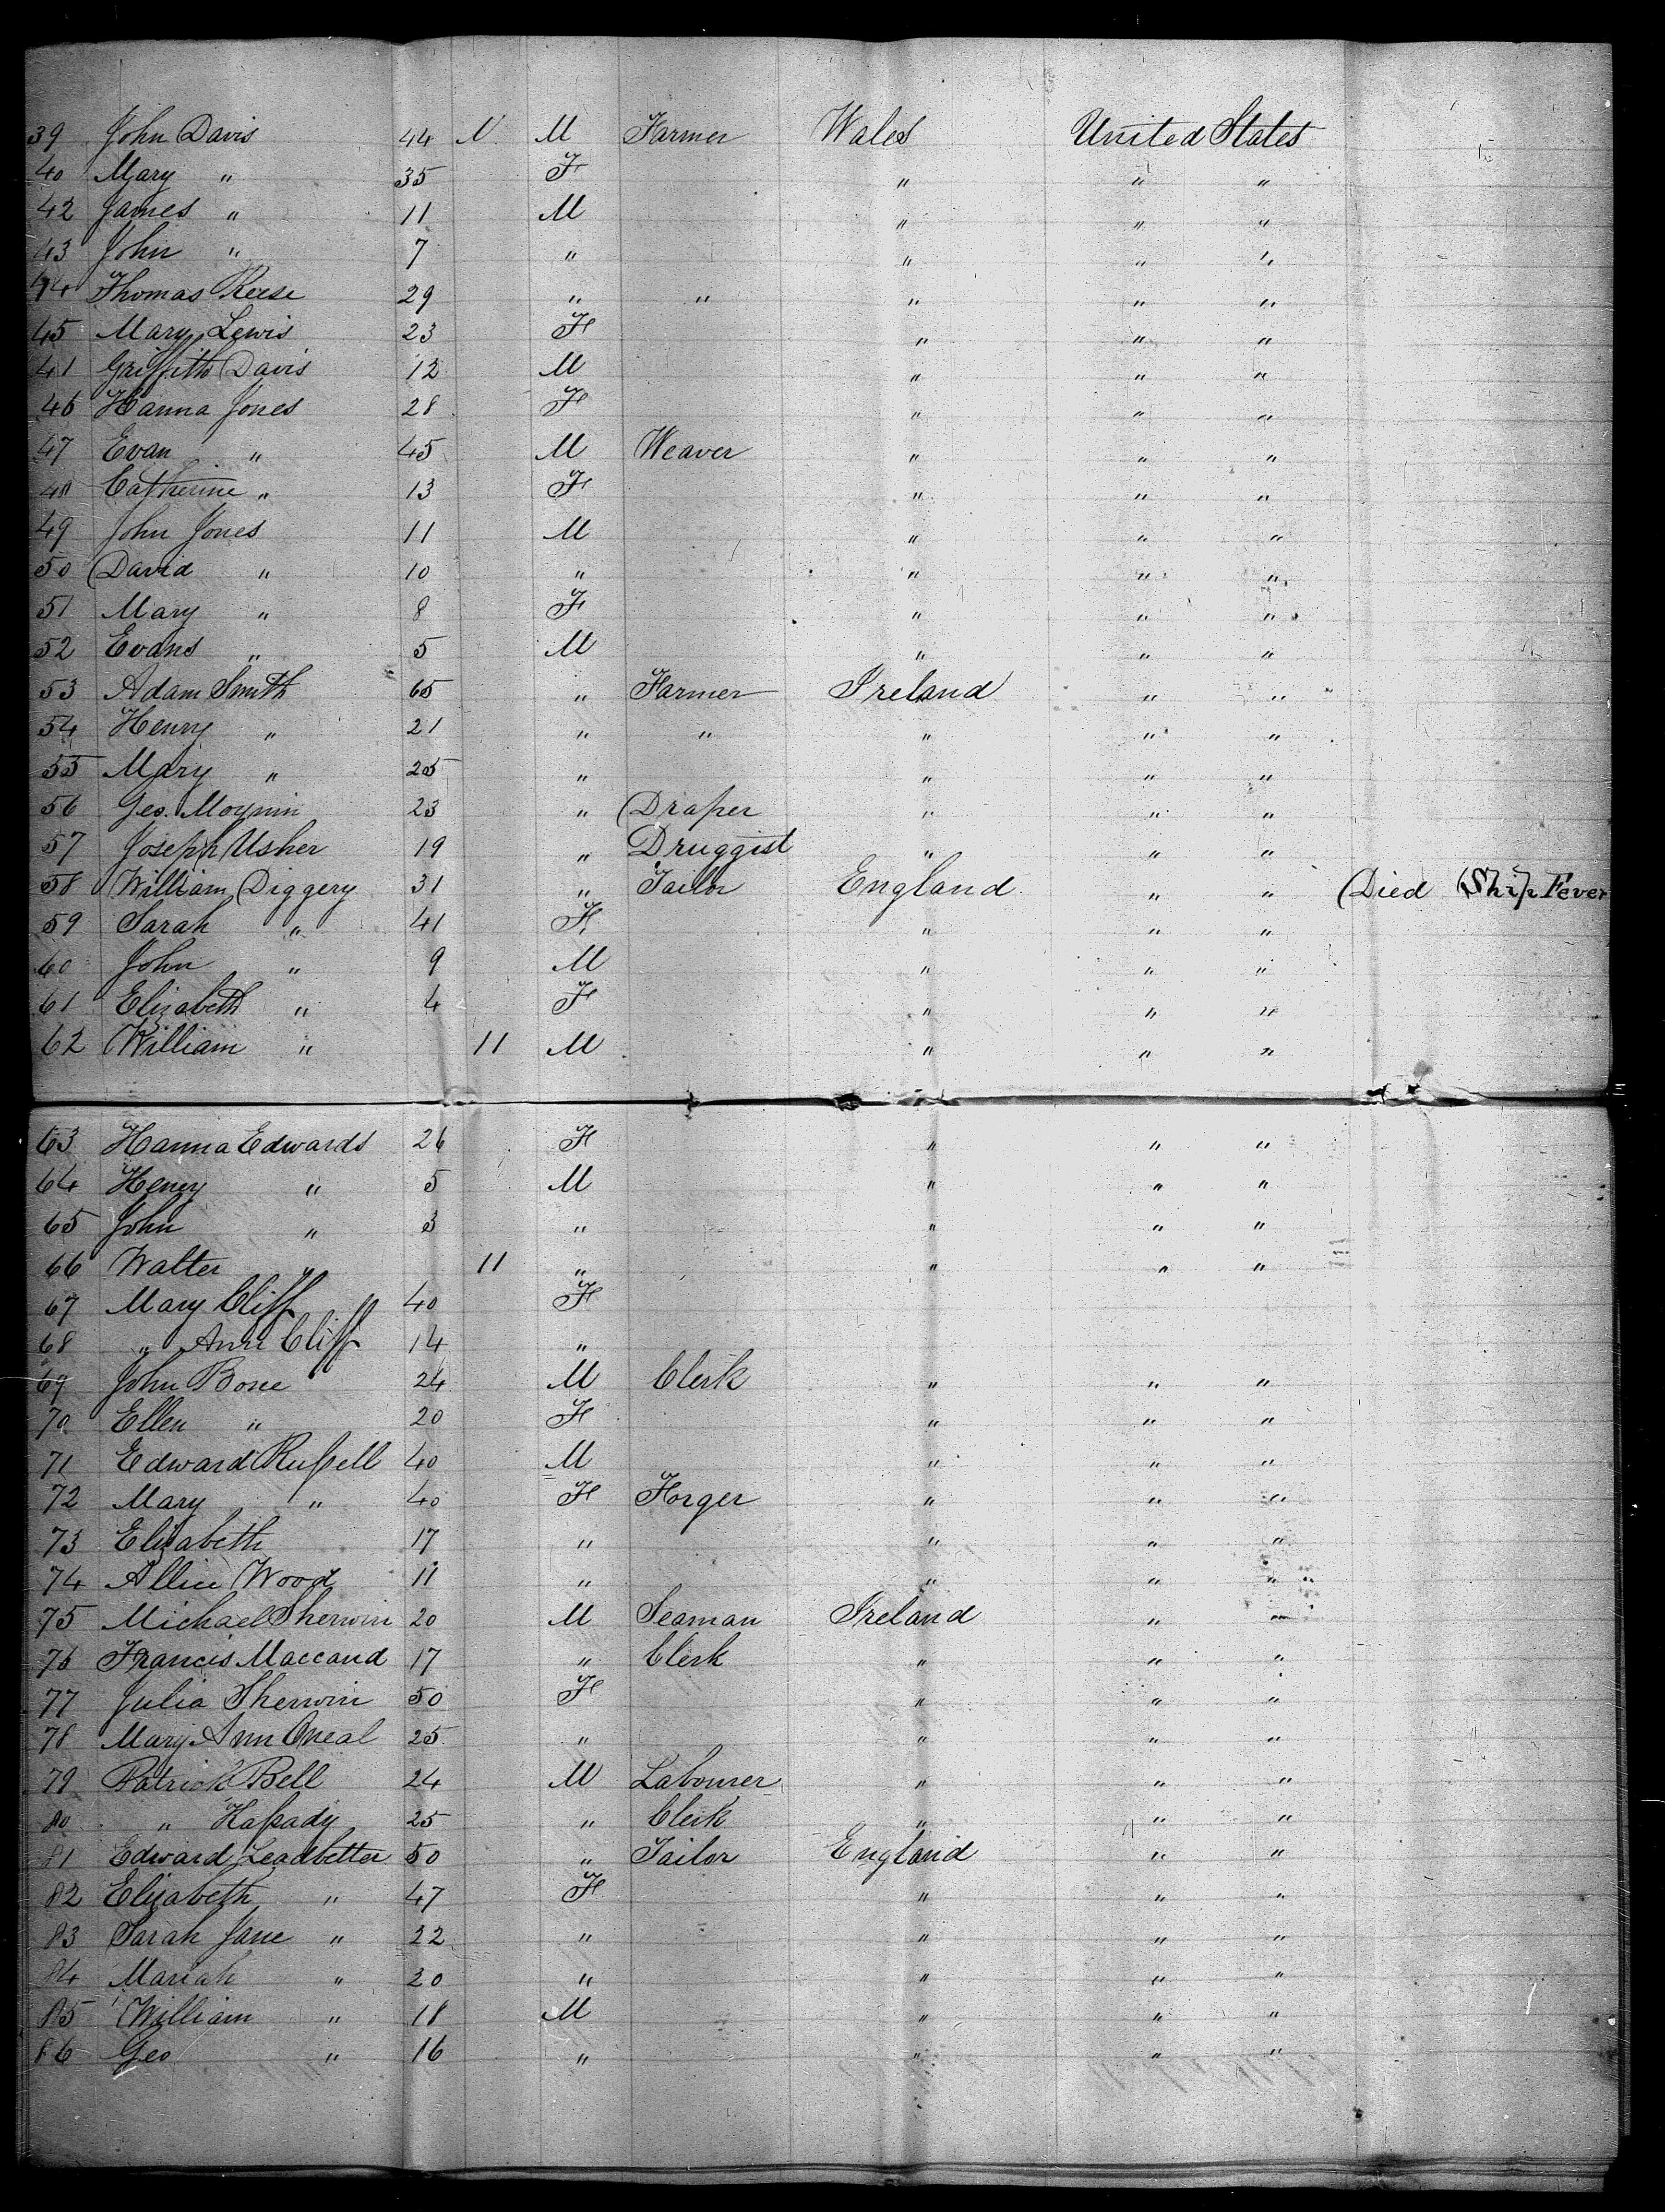 39 John Davis 44 N M Farmer Wales United States
40 Mary " 35 F " " "
42 James " 11 M " " "
43 John " 7 " " " "
44 Thomas Reese 29 " " " " "
45 Mary Lewis 23 F " " "
41 Griffith Davis 12 M " " "
46 Hanna Jones 28 F " " "
47 Evan " 45 M Weaver " " "
48 Catherine " 13 F " " "
49 John Jones 11 M " " "
50 David " 10 " " " "
51 Mary " 8 F " " "
52 Evans " 5 M " " "
53 Adam Smith 65 " Farmer Ireland " "
54 Henry " 21 " " " " "
55 Mary " 25 " " " "
56 Geo. Moynin 23 " Draper " " "
57 Joseph Usher 19 " Druggist " " "
58 William Diggery 31 " Tailor England " " Died Ship Fever
59 Sarah " 41 F " " "
60 John " 9 M " " "
61 Elizabeth " 4 F " " "
62 William " 11 M " " "
63 Hanna Edwards 26 F " " "
64 Henry " 5 M " " "
65 John " 3 " " " "
66 Walter " 11 " " " "
67 Mary Cliff 40 F
68 " Ann Cliff 14 "
69 John Bone 24 M Clerk " " "
70 Ellen " 20 F " " "
71 Edward Russell 40 M " " "
72 Mary " 40 F Forger " " "
73 Elizabeth 17 " " " "
74 Allice Wood 11 " " " "
75 Michael Sherwin 20 M Seaman Ireland " "
76 Francis Maccaud 17 " Clerk " " "
77 Julia Sherwin 50 F " " "
78 Mary Ann Oneal 25 " " " "
79 Patrick Bell 24 M Labourer " " "
80 " Hassady 25 " Clerk " " "
81 Edward Leadbetter 50 " Tailor England " "
82 Elizabeth " 47 F " " "
83 Sarah Jane " 22 " " " "
84 Mariah " 20 " " " "
85 William " 18 M " " "
86 Geo " 16 " " " "